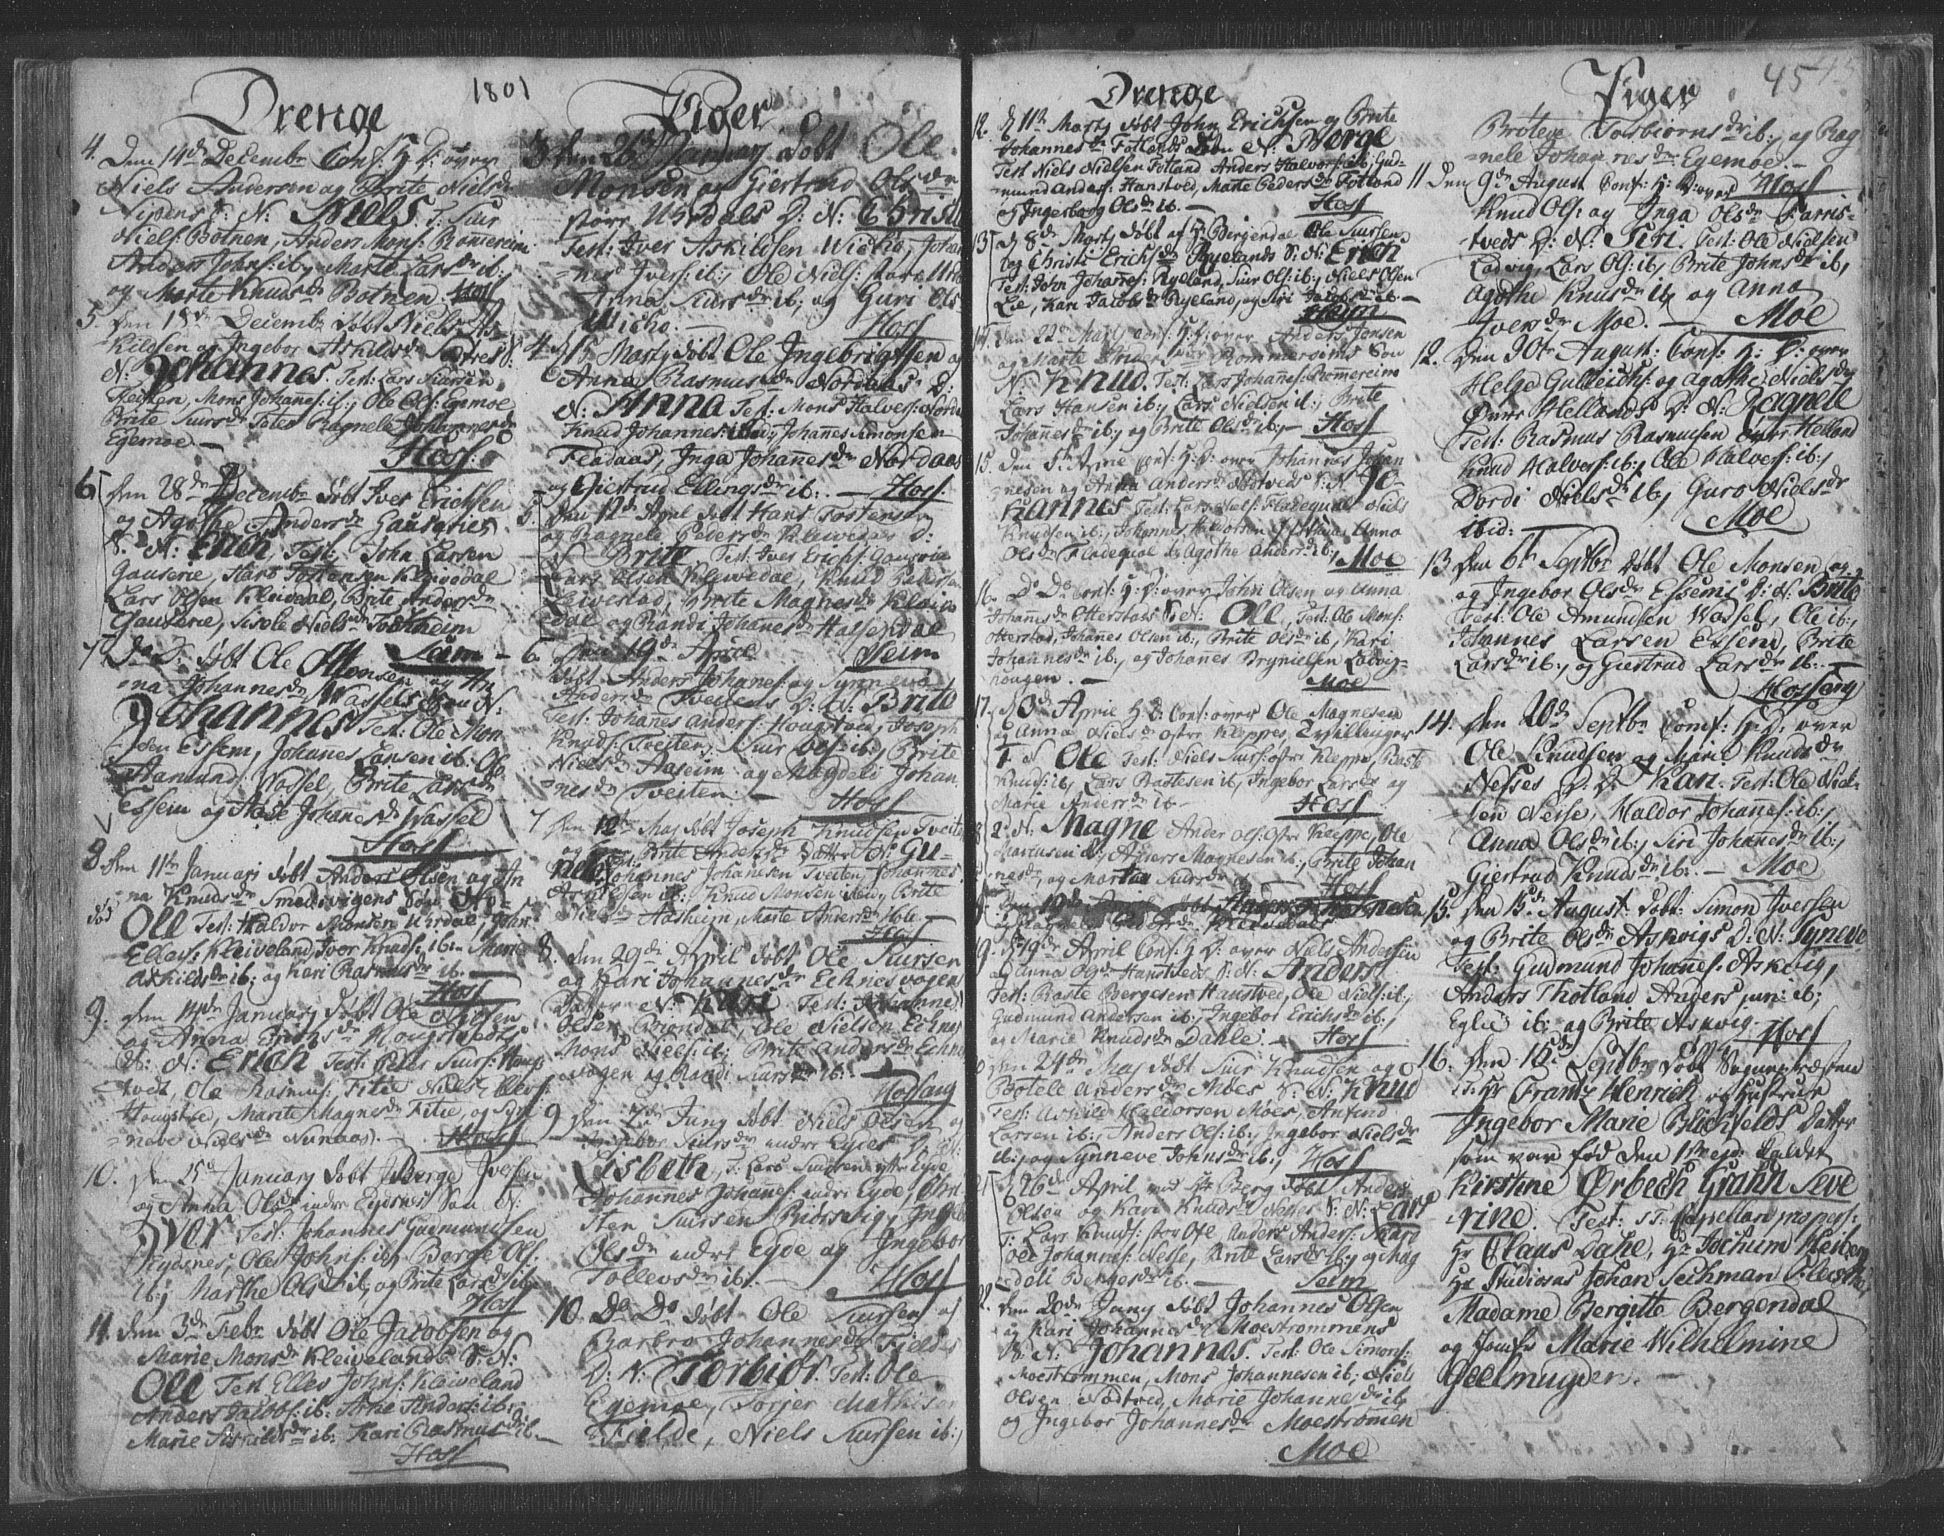 1801
Drenge
4. Den 14de Decembr Conf: H: D: over
Niels Andersen og Brite Nielsdr
Nipens S: N: Niels. T: Siur
Niels: Botnen, Anders Mons: Rommereim
Anders Johns: ib; Marte Larsdr ib:,
og Marte Knudsdr Botnen. Hoss
5. Den 18de Decembr døbt Niels As-
kildsen og Ingebor Askildsdr S:
N: Johannes. Test: Lars Siursen
Mons Johanes: ib:, Ole Ols: Egemoe
Brite Siursdr Ragnele Johannesdr
Egemoe —
Hoss
6. Den 28de Decembr døbt Iver Erichsen
og Agothe Andersdr Gauseries
S: N: Erich Test: John Larsen
Gauserie, Hans Tostensen Kleivedal
Lars Olsen Kleivdal, Brite Andersdr
Gauserie, Sisele Nielsdr
Seim
7. Do D: døbt Ole Monsen og An-
na Johannesdr Wassels Søn N:
Johannes Test: Ole Mon-
sen Essem, Johanes Larsen ib: Ole
Aamund: Vassel, Brite Larsdr
Essem og Johanesdr Wassel
Hoss
8. Den 11te Januari døbt Anders Olsen og An-
na Knudsdr Smedsvigens Søn No-
Ole Test: Haldor Monsen Urdal, John
Elles: Kleiveland, Iver Knuds: ib: Marie
Askildsdr ib; og Kari Rasmusdr ib. —
Hoss
9. Den 14de January døbt Ole Olsen
og Anna Erichsdr Hougstvedts
S: N: Erich Test: Peler Siurs: Houg-
tvedt, Ole Rasmus: Fitie Niels Elles:
Hougstve, Marite Magnesdr Fitie, og Syn-
neve Nielsdr — Hoss
10. Den 15d January døbt Berge Iversen
og Anna Olsdr indre Eydnes Søn N:
Iver Test: Johannes Gudmundsen
Eydsnes, Ole Johns: ib; Berge Ols:
ib; Marthe Olsdr ib, og Brite Larsdr ib;
Hoss
11. Den 3de Febr døbt Ole Jacobsen og
Marie Monsdr Kleivelands S: N:
Ole Test Elles Johns: Kleiveland
Anders Jacobs: ib: Anders: ib:
Marie Askildsdr ib: Kari Rasmusdr ib. —
Hoss
Piger
3 Den 26de January døbt Ole
Monsen og Giertrud Olsdr
store Urdals D: N: Christi
Test: Iver Askildsen Wicho, Johan-
nes Ivers: ib:, Ole Niels: store Urd
Anna Siursdr ib; og Guri Ols
Wicho. — Hoss
4. d 15 Marty døbt Ole Ingebrigtsen og
Anna Rasmusdr Nordaas D:
N: Anna Test: Mons Halvors: Norda
Knud Johannes: ibid; Johanes Simonsen
Fladaas, Inga Johanesdr Nordaas
og Giertrud Ellingsdr ib: — Hoss
5. Den 12te April døbt Hans Tostensen
og Ragnele Pedersdr Kleivenas D:
N: Brite Test: Iver Erichs: Gauserie
Lars Olsen Klewedal, Knud
Brite Magnesdr Kleive-
dal og Randi Johanesdr
Seim
6. Den 19de April
døbt Anders Johanes: og Synneva
Andersdr Tveitens D: N: Brite
Test: Johanes Anders: Hougstad, Joseph
Knuds: Tveiten, Siur Ols: ib:, Brite
Nielsdr Aaseim og Magdeli Johan-
nesdr Tveiten. — Hoss
7 Den 12te May døbt Joseph Knudsen Tveite
og Brite Andersdr Datter N: Gu-
Johannes Johansen Tveiten, Johannes
Knud Monsen ibid, Brite
Nielsdr Aasheim, Marte Andersdr
Hoss
8. Den 29de April døbt Ole Siursen
og Kari Johannesdr Echnesvogens
Datter N: Kari Test: Johannes
Olsen Brendal, Ole Nielsen Echnes
Mons Niels: ib; Brite Andersdr Echne
vogen og Randi Siursdr ib: —
Hossang
9 Den 7de Juny døbt Niels Olsen og
Ingebor Siursdr indre Eydes D: N:
Lisbeth, T: Lars Siursen yttre Eyde
Johannes Johanes: indre Eyde, Chri-
sten Siursen Biørsvig, Ingebor
Olsdr indre Eyde og Ingebor
Tollevsdr ib: — Hoss
10. Do Do døbt Ole Siursen og
Barbro Johannesdr Fields
D: N: Torbiør. Test: Ole
Egemoe, Torjer Mathisen
Fielde, Niels Siursen ib:,
Drenge
12. d 11te Marty døbt John Erichsen og Brite
Johannesdr Fotlands Søn N: Berge
Test Niels Nielsen Fotland Anders Halvors: ib: Gud-
mund Anders: Hanstved, Marte Pedersdr Fotland
og Ingeborg Olsdr ib. — Hoss
13. d 8de Marty døbt af H: Bergendal Ole Siursen
og Christi Erichsdr Ryelands S: N: Erich
Test: John Johanes: Ryeland, Siur Ols: ib:, Niels Olsen
Lie, Kari Jacobsdr Ryeland, og Siri Jacobsdr ib —
Heim
14. Den 22de Mart Conf: H: D: over Anders Jonsen
og Marte Rommereims Søn
N: Knud. Test: Lars Johanes: Romereim
Lars Hansen ib:, Lars Nielsen ib:, Brite
Johannesdr ib:, og Brite Olsdr ib. — Hoss
15. Den 5te April Conf: H: D: over Johannes Johan-
nesen og Anna Andersdr S: N: Jo-
hannes Test: Lars Niels: Fladequal Niels
Knudsen ib:, Johannes Anna
Olsdr Fladequal & Agothe Andersdr ib: Moe
16. Do Do Conf: H: D: over John Olsen og Anna
Johanesdr Otterstads S: N: Ole, Test: Ole Mons:
Otterstad, Johanes Olsen ib:, Brite Olsdr ib, Kari
Johannesdr ib:, og Johannes Brynielsen Ladvig-
hougen. — Moe
17. D: 3de Aprile H: D: Conf: over Ole Magnesen
og Anna Nielsdr østre Kleppes Tvillinger
1 N: Ole Test: Niels Siurs: østre Kleppe, Baste
Knuds: ib:, Lars Bastesen ib:, Ingebor Larsdr og
Marie Andersdr ib — Hoss
18. 2: N: Magne Ander Ols: østre Kleppe, Ole
Martisen ib:, Anders Magnesen ib:, Brite Johan
nesdr, og Martha Siursdr Hoss
19. d 19de April Conf: H: D: over Niels Anders:
og Anna Olsdr Hanstveds S: N: Anders
Test: Baste Bergesen Hanstved, Ole Niels: ib:,
Gudmund Andersen ib:, Ingebor Erichsdr ib:,
og Marie Knudsdr Dahle. — Hoss
Den 24de May døbt Siur Knudsen og
Botele Andersdr Moes S: N: Knud
Test: Askild Haldorsen Moes, Anfind
Larsen ib:, Anders Ols: ib:, Ingebor Nielsdr
ib:, og Synneve Johnsdr ib:, Hoss
21. d 26de April ved Hr Berg døbt Anders
Olsen og Kari Knudsdr Nesses S: N: Lars
T: Lars Knuds: store Ole Anders Anders:
Ole Johannes: Nesse, Brite Larsdr ib: og Mag
deli Bergesdr ib: — Seim
22. Den 20de Juny døbt Johannes Olsen
og Kari Johannesdr Moestrømmens
S: N: Johannes. Test: Ole Simons:
Moestrømmen, Mons Johannesen ib:, Niels
Olsen Nødtved, Marie Johannesdr ib:,
og Ingebor Johannesdr Moestrømen
Moe
45
Piger
Brøteve Torbiornsdr ib:, og Rag
nele Johannesdr Egemoe. —
11 Den 9de August Conf: H: D: over Hoss
Knud Ols: og Inga Olsdr Farris-
tveds D: N: Siri. Test: Ole Nielsen
Ladvig, Lars Ols: ib, Brite Johnsdr ib,
Agothe Knusdr ib, og Anna
Iversdr Moe. — Moe
12. Den 30te August: Conf: H: D: over
Helge Gulleichs: og Agothe Nielsdr
Øvre Hellands D: N: Ragnele
Test: Rasmus Rasmusen øvre Helland
Knud Halvors: ib:, Ole Halvors: ib:,
Dordi Nielsdr ib:, Guro Nielsdr
ibid: — Moe
13 Den 6te Septbr døbt Ole Monsen og
og Ingebor Olsdr Essems D: N: Brite
Test: Ole Amundsen Wassel, Ole ib:,
Johannes Larsen Essem, Brite
Larsdr ib:, og Giertrud Larsdr ib: —
Hossang
14. Den 20de Septbr Conf: H: D: over
Ole Knudsen og Marie Knudsdr
Nesses D: N: Kari. Test: Ole Niel-
sen Nesse, Haldor Johannes: ib:,
Anna Olsdr ib:, Siri Johannesdr ib:,
Giertrud Knudsdr ib: — Moe
15. Den 15de August: døbt: Simon Iversen
og Brite Olsdr Askvigs D: N: Syneve
Test: Gudmund Johanes: Askvig,
Anders Thotland Anders jun: ib;
Eglie ib: og Brite Askvig.
Hoss
16. Den 16de Septbr døbt Sognepræsten
Hr Frantz Henrich og Hustrue
Ingebor Marie Blichfelds Datter
som var fød den 1te ejd: kaldet
Kirstine Ørbech Grahn Seve
rine. Test: SS: Capellan pro pers:
Hr Claus Dahl, Hr Jochum Heiberg
Hr Studiosus Johan Sechman Fleischer
Madame Bergitte Bergendal
og Jomfr Marie Wilhelmine
Geelmuyden. —